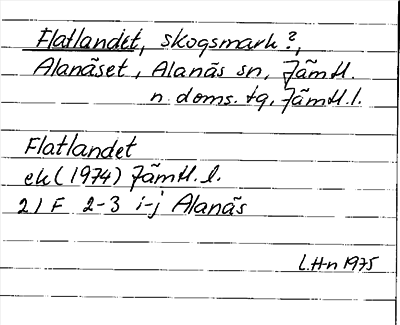 Flatlandet, skogsmark?,
Alanäset, Alanäs sn, Jämtl.
n. doms. tg, Jämtl.l.
Flatlandet
ek (1974) Jämtl. l.
21 F 2-3 i-j Alanäs
L.H-n 1975